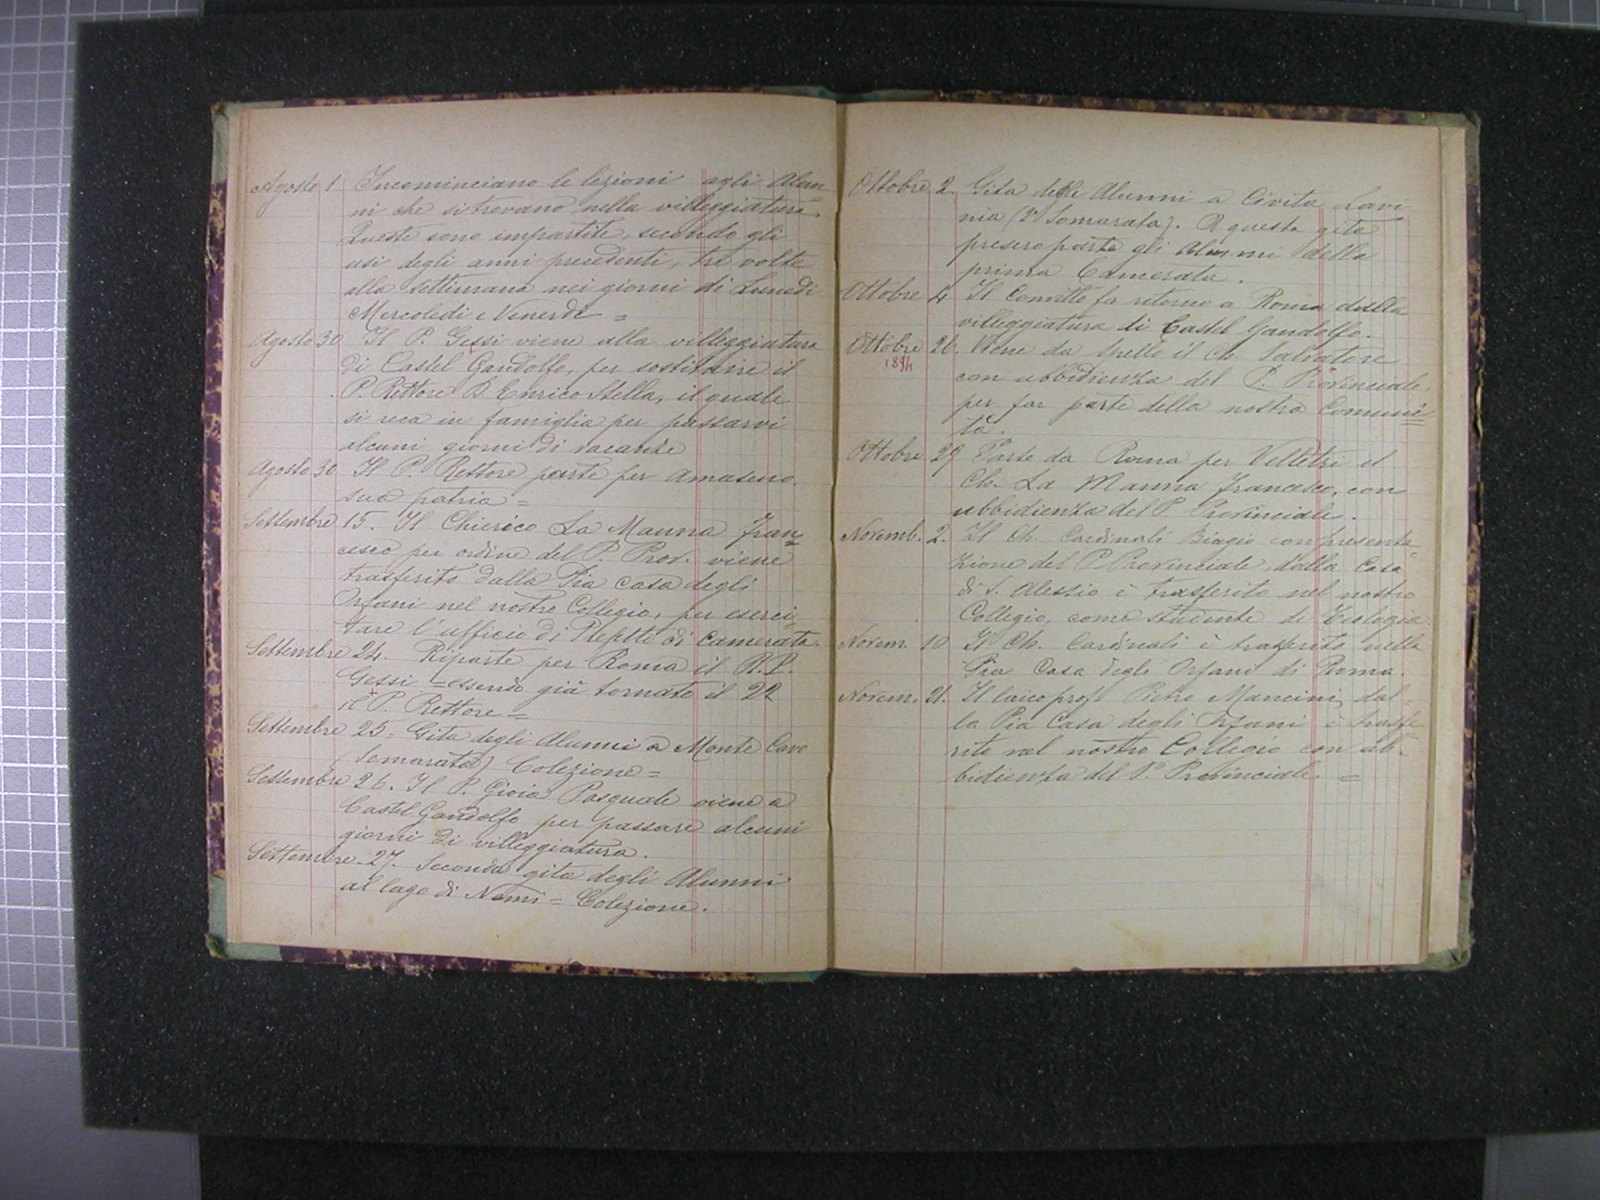 Agosto 1 Incominciano le lezioni agli Alun
ni che si trovano nella villeggiatura
Queste sono impartite, secondo gli
usi degli anni precedenti, tre volte
alla settimana nei giorni di Lunedì
Mercoledì e Venerdì =
Agosto 30 Il P. Gessi viene alla villeggiatura
di Castel Gandolfo, per sostituire il
P. Rettore D. Enrico Stella, il quale
si reca in famiglia per passarvi
alcuni giorni di vacanze
Agosto 30 Il P. Rettore parte per Amaseno
sua patria =
Settembre 15. Il Chierico La Manna Fran
cesco per ordine del P. Prov. viene
trasferito dalla Pia casa degli
Orfani nel nostro Collegio, per eserci
tare l'ufficio di Prefetto di Camerata.
Settembre 24. Riparte per Roma il R. P.
Gessi = essendo già tornato il 22
il P. Rettore =
Settembre 25 = Gita degli Alunni a Monte Cavo
Somarata) Colezione =
Settembre 26. Il P. Gioia Pasquale viene a
Castel Gandolfo per passare alcuni
giorni di villeggiatura.
Settembre. 27. Seconda gita degli Alunni
al lago di Nemi = Colezione.
Ottobre 2. Gita degli Alunni a Civita Lavi
nia (2ª Somarata). A questa gita
presero parte gli Alunni della
prima Camerata.
Ottobre 4 Il Convitto fa ritorno a Roma dalla
villeggiatura di Castel Gandolfo.
Ottobre 26. Viene da Spello il Ch. Salvatore
1894
con ubbidienza del P. Provinciale,
per far parte della nostra Comuni
tà.
Ottobre 29 Parte da Roma per Velletri il
Ch. La Manna Francesco, con
ubbidienza del P. Provinciale.
Novemb. 2. Il Ch. Cardinali Biagio con presenta
zione del P. Provinciale, dalla Casa
di S. Alessio è trasferito nel nostro
Collegio, come studente di Teologia.
Novem. 10 Il Ch. Cardinali è trasferito nella
Pia Casa degli Orfani di Roma.
Novem. 21. Il laico prof. Pietro Mancini, dal-
la Pia Casa degli Orfani è trasfe
rito nel nostro Collegio con ub-
bidienza del P. Provinciale. =